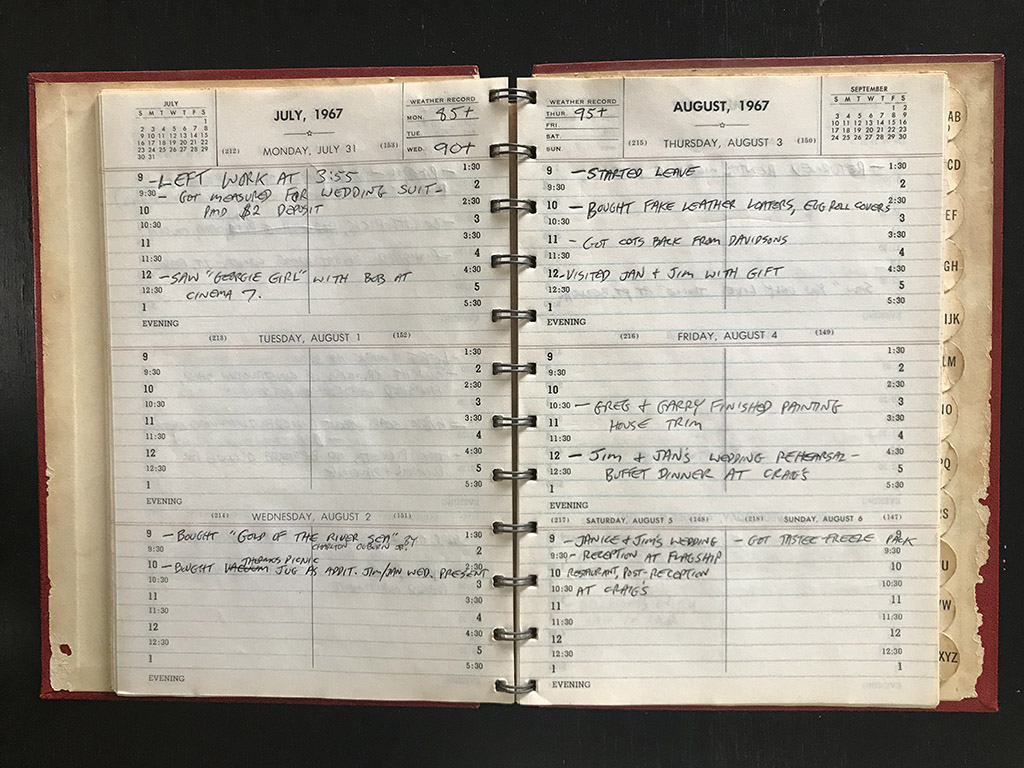 JULY
S M T W T F S
1
2 3 4 5 6 7 8
9 10 11 12 13 14 15
16 17 18 19 20 21 22
23 24 25 26 27 28 29
30 31
JULY, 1967
WEATHER RECORD
MON. 85+
TUE.
WED. 90+
(212) MONDAY, JULY 31 (153)
9 - LEFT WORK AT 3:55 1:30
9:30 - GOT MEASURED FOR WEDDING SUIT- 2
10 PAID $2 DEPOSIT 2:30
10:30 3
11 3:30
4
12 - SAW "GEORGIE GIRL" WITH BOB AT 4:30
12:30 CINEMA 7. 5
1 5:30
EVENING
(213) TUESDAY, AUGUST 1 (152)
9 1:30
9:30 2
10 2:30
10:30 3
11 3:30
11:30 4
12 4:30
12:30 5
1 5:30
EVENING
(214) WEDNESDAY, AUGUST 2 (151)
9 - BOUGHT "GOLD OF THE RIVER SEA" BY 1:30
9:30 CHARLTON OGBURN JR. 2
THERMOS PICNIC
10 - BOUGHT VACUUM JUG AS ADDIT. JIM/JAN WED. PRESENT 2:30
10:30 3
11 3:30
11:30 4
12 4:30
12:30 5
1 5:30
EVENING
WEATHER RECORD
THUR. 95+
FRI.
SAT.
SUN.
AUGUST, 1967
SEPTEMBER
S M T W T F S
1 2
3 4 5 6 7 8 9
10 11 12 13 14 15 16
17 18 19 20 21 22 23
24 25 26 27 28 29 30
(215) THURSDAY, AUGUST 3 (150)
9 - STARTED LEAVE 1:30
9:30 2
10 - BOUGHT FAKE LEATHER LOAFERS, EGG ROLL COVERS 2:30
10:30 3
11 - GOT COTS BACK FROM DAVIDSONS 3:30
4
12 - VISITED JAN + JIM WITH GIFT 4:30
12:30 5
1 5:30
EVENING
(216) FRIDAY, AUGUST 4 (149)
9 1:30
9:30 2
10 2:30
10:30 - GREG + GARRY FINISHED PAINTING 3
11 HOUSE TRIM 3:30
11:30 4
12 - JIM + JAN'S WEDDING REHEARSAL - 4:30
12:30 BUFFET DINNER AT CRAIG'S 5
1 5:30
EVENING
(217) SATURDAY, AUGUST 5 (148) (218) SUNDAY, AUGUST 6 (147)
9 - JANICE + JIM'S WEDDING - GOT TASTEE FREEZE PACK 9
9:30 - RECEPTION AT FLAGSHIP 9:30
10 RESTAURANT, POST-RECEPTION 10
10:30 AT CRAIG'S 10:30
11 11
11:30 11:30
12 12
12:30 12:30
1 1
EVENING
AB
CD
EF
GH
IJK
LM
PQ
RS
U
VW
XYZ